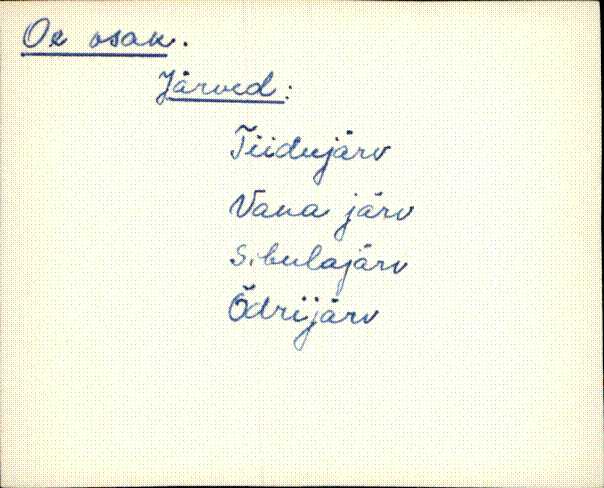 Oe osak.
Järved:
Tiidujärv
Vana järv
Sibulajärv
Õdrijärv